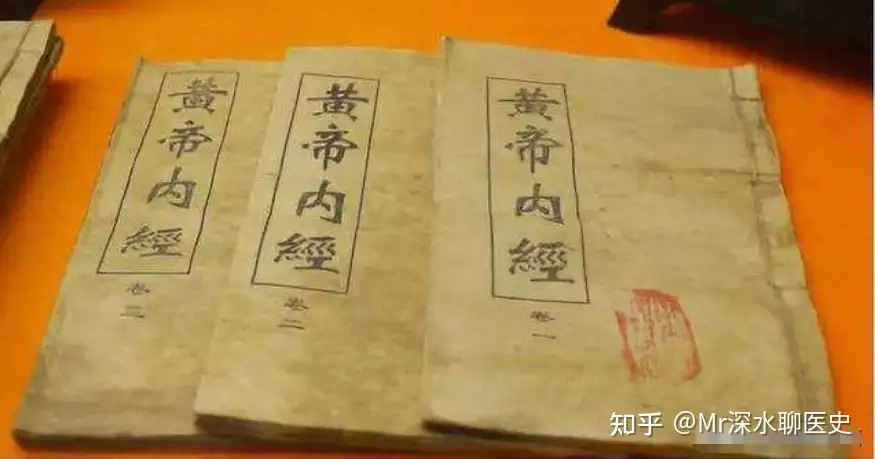 黄帝内經
卷三
黄帝内經
卷二
黄帝内經
卷一
知乎 @Mr深水聊医史